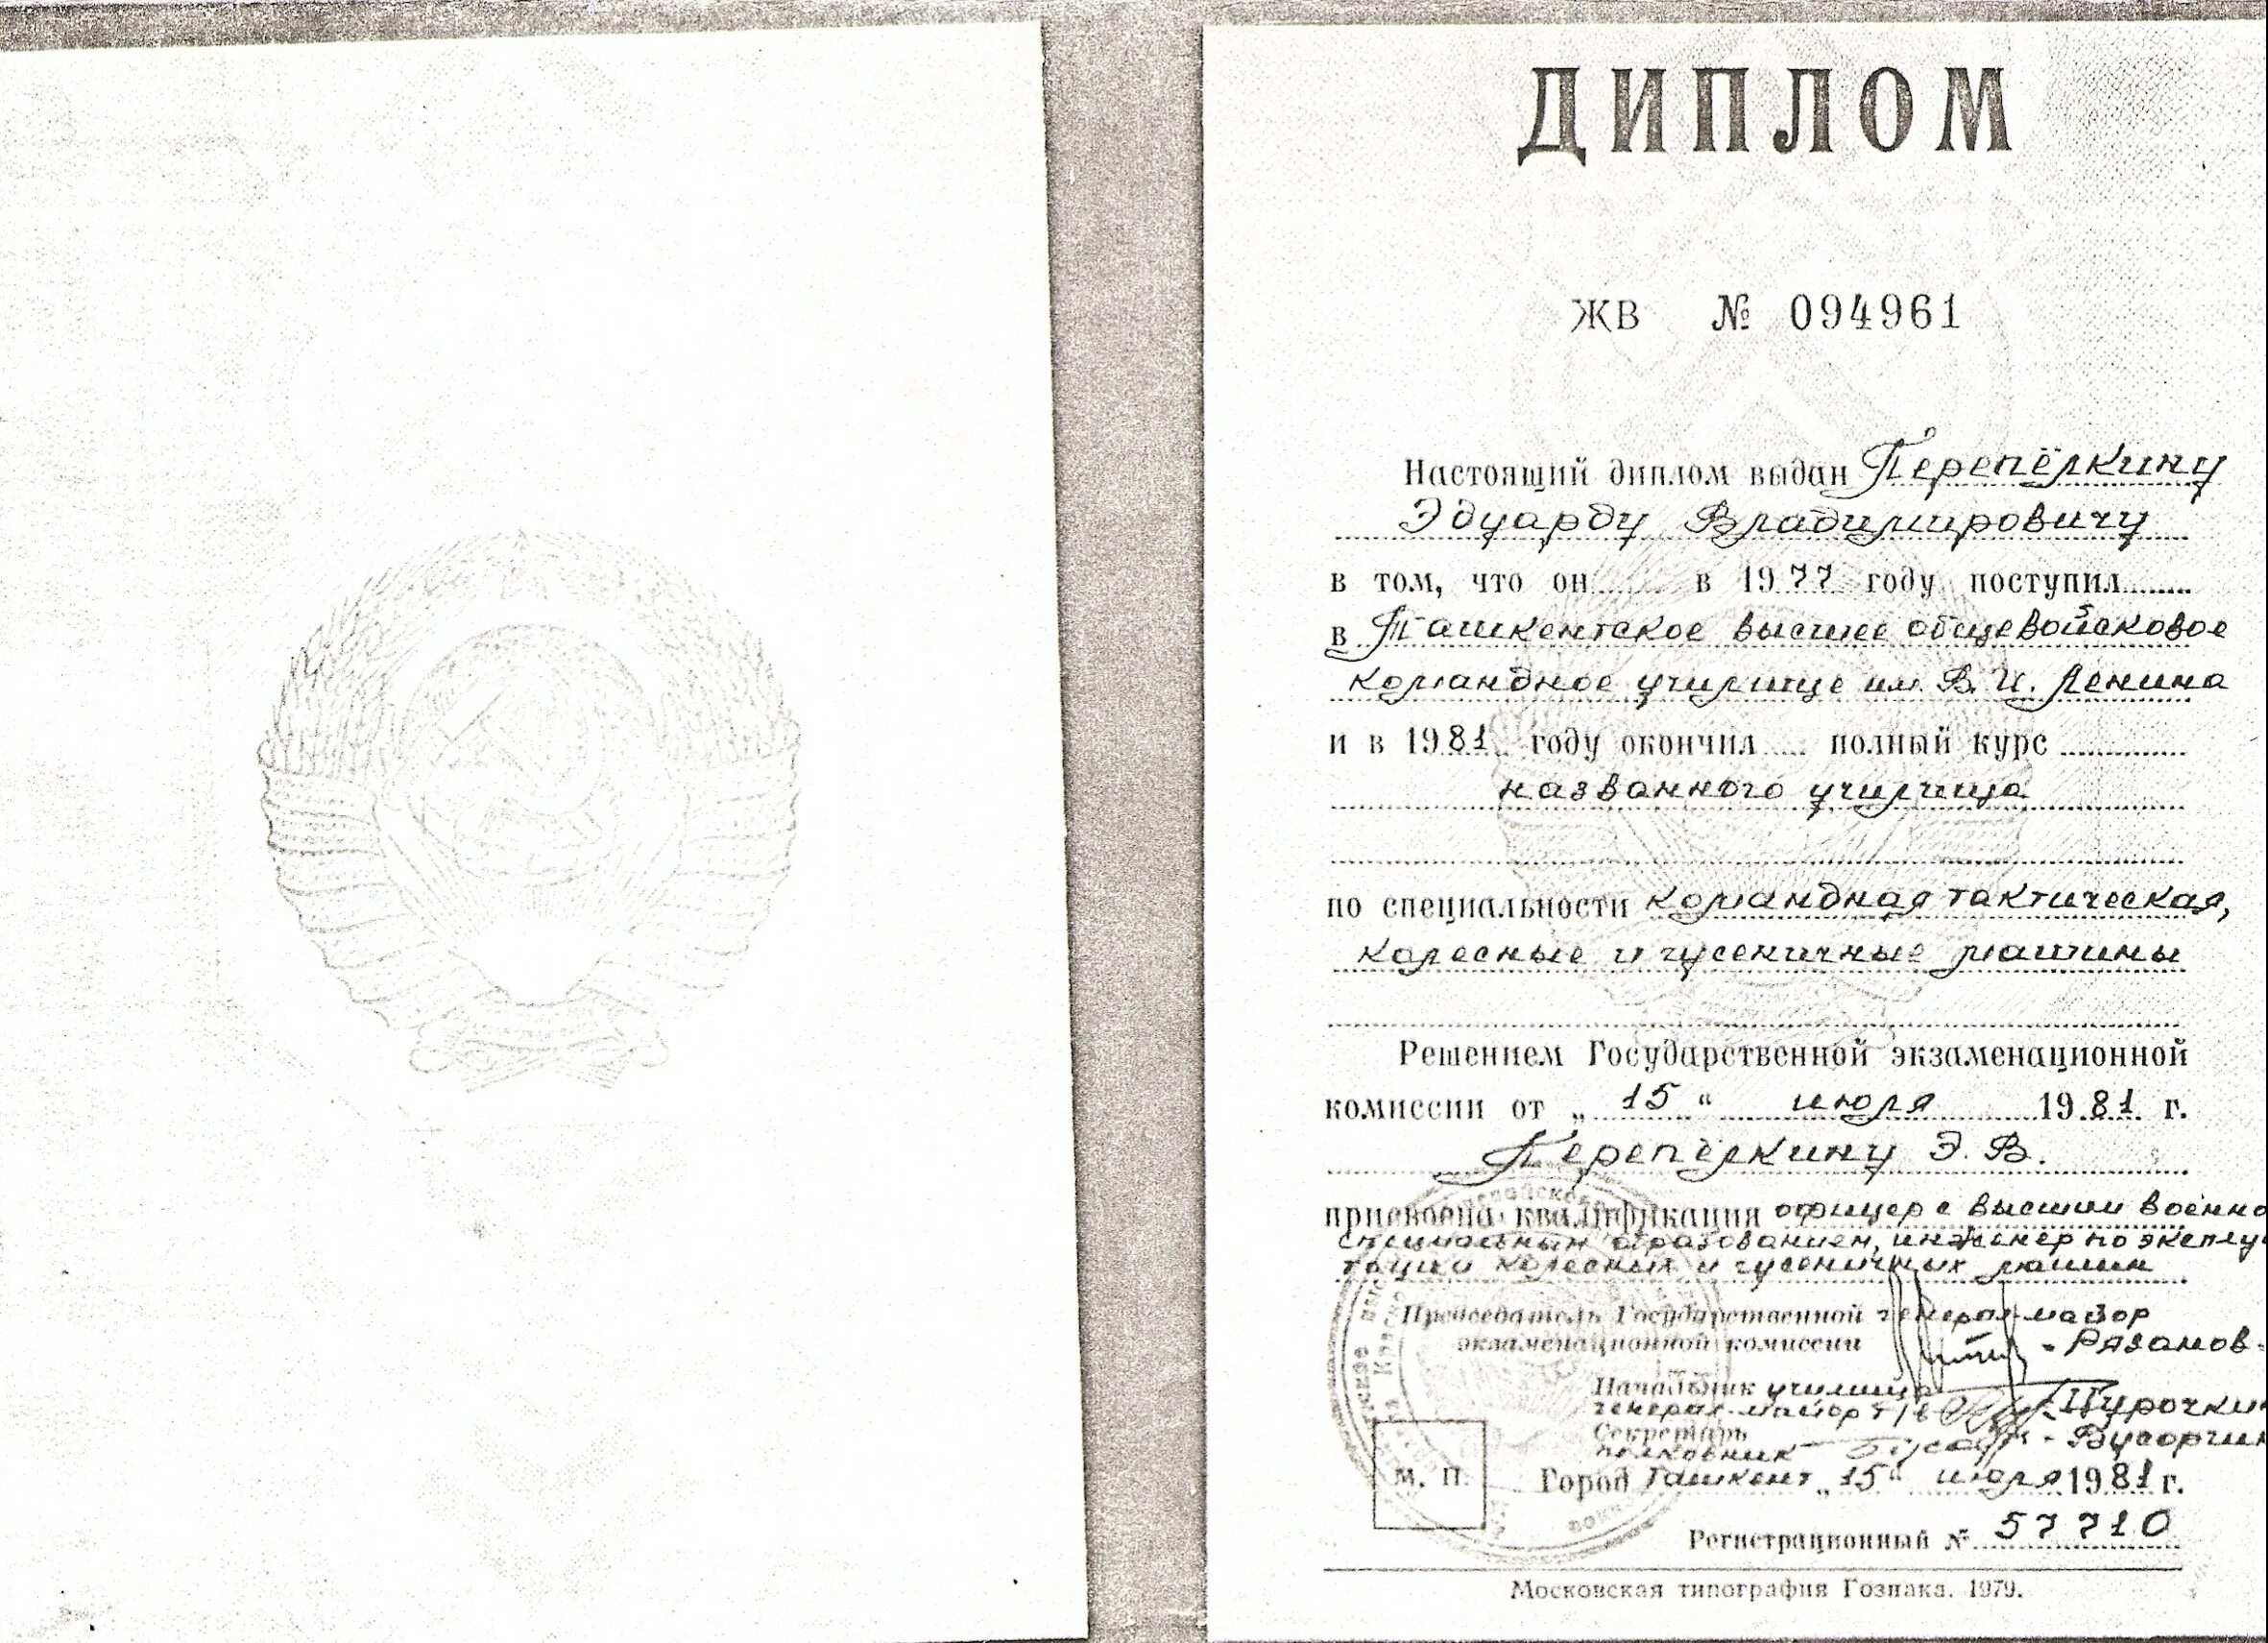 ДИПЛОМ
ЖВ № 094961
Настоящий диплом выдан Перепёлкину
Эдуарду Владимировичу
в том, что он в 1977 году поступил
в Ташкентское высшее общевойсковое
командное училище им. В. И. Ленина
и в 1981 году окончил полный курс
названного училища
по специальности командная тактическая,
колесные и гусеничные машины
Решением Государственной экзаменационной
комиссии от „15“ июля 1981 г.
Перепёлкину Э. В.
присвоена квалификация офицер с высшим военно
специальным образованием, инженер по эксплу
тации колесных и гусеничных машин
Председатель Государственной генерал-майор
экзаменационной комиссии - Рязанов
Начальник училища
генерал-майор т/в
Секретарь
полковник
М. П. Город Ташкент „15“ июля 1981 г.
Регистрационный № 57710
Московская типография Гознака. 1979.